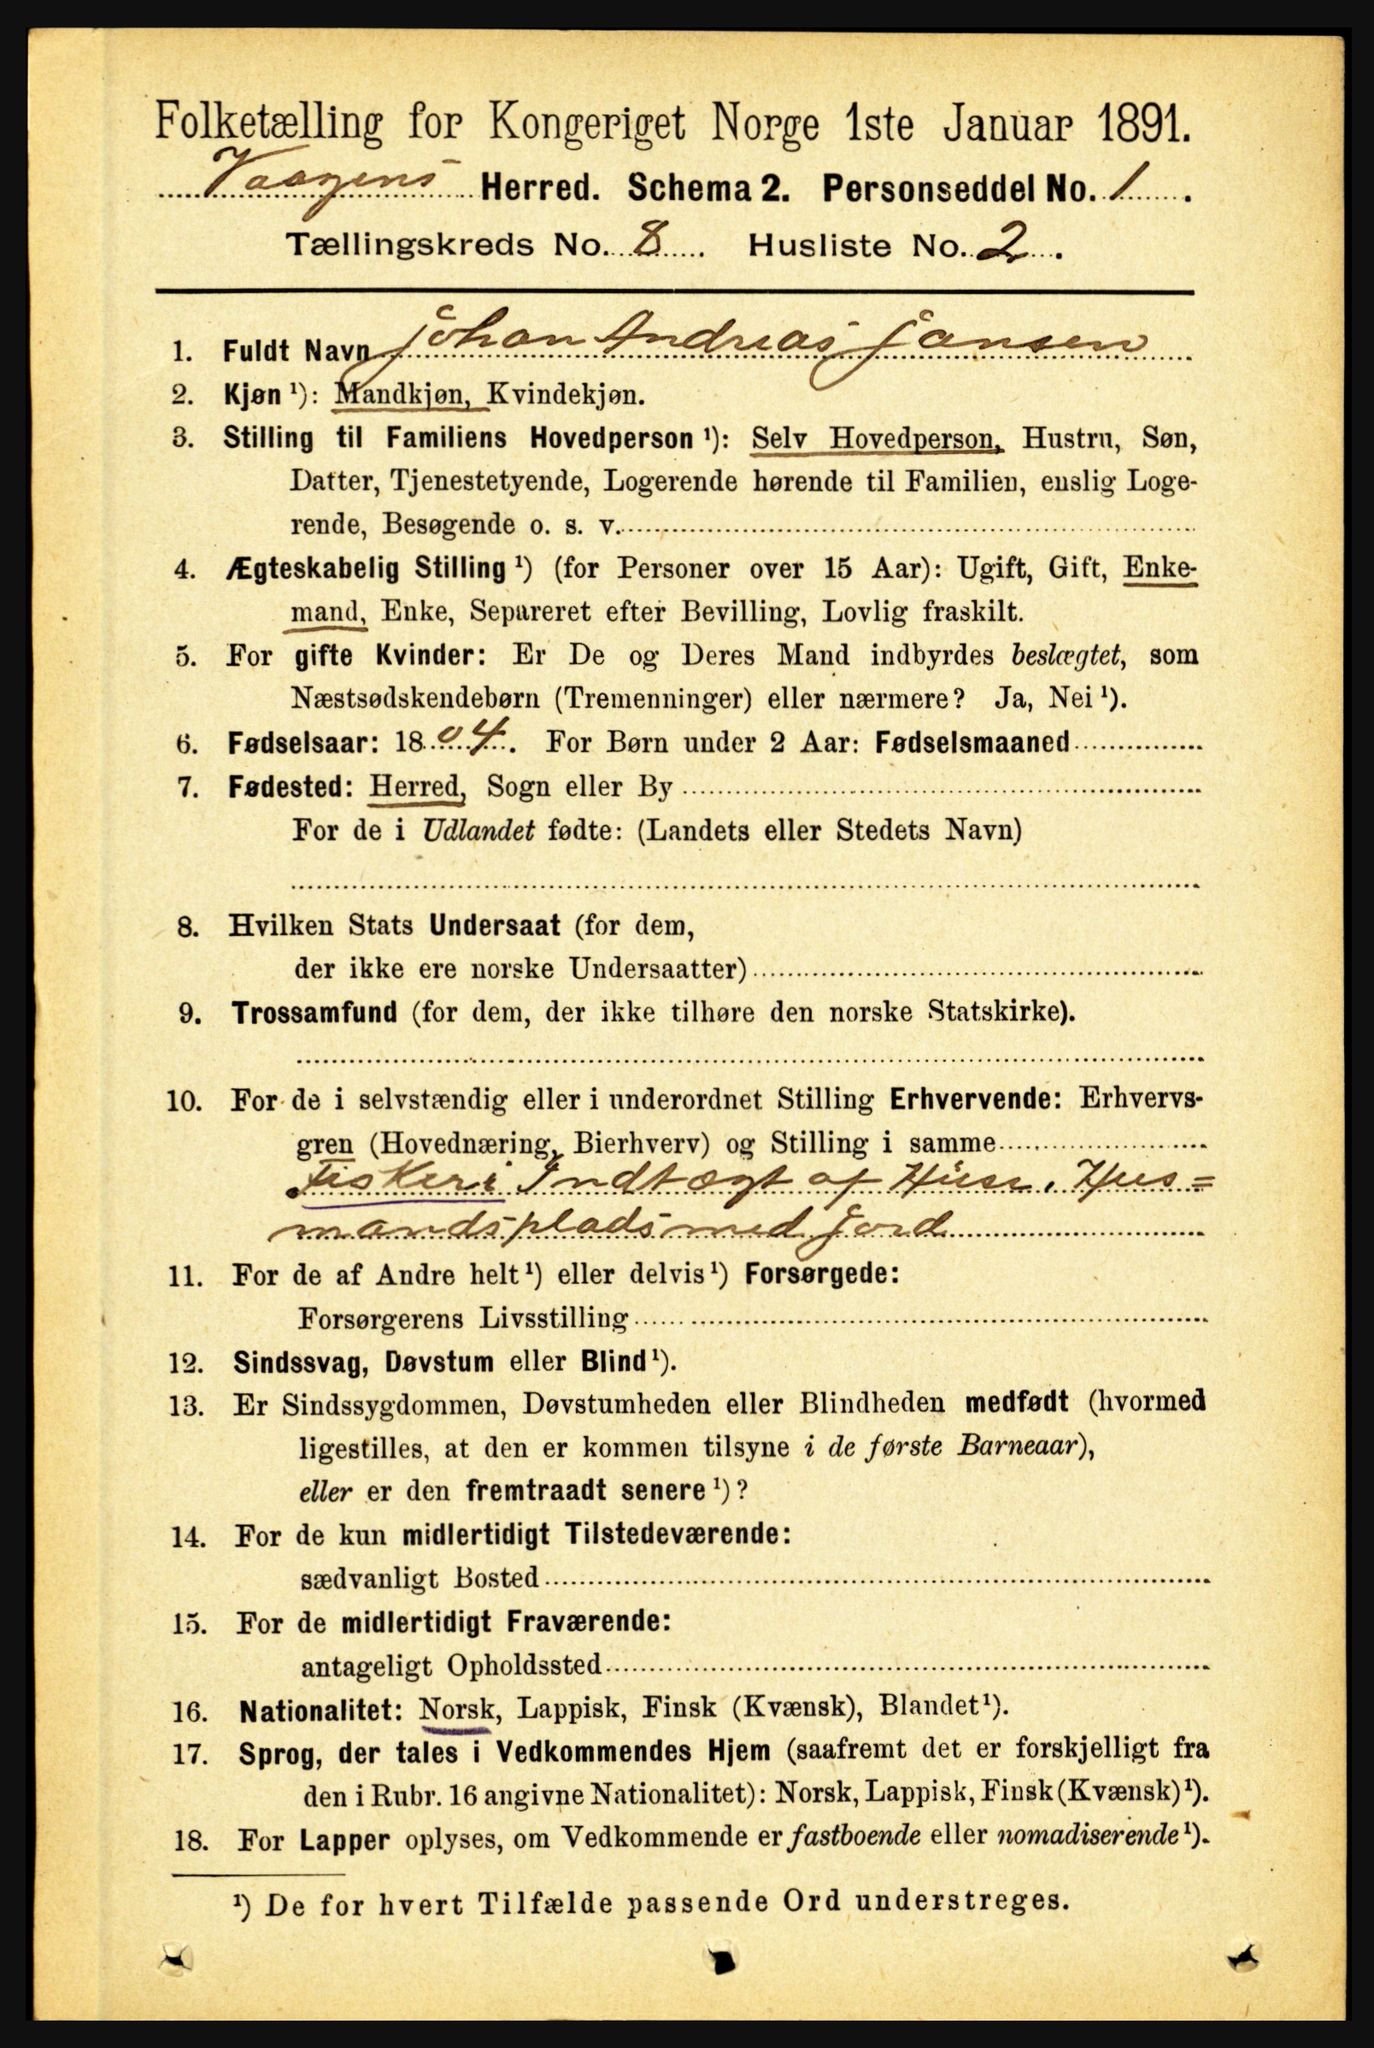 Folketælling for Kongeriget Norge 1ste Januar 1891.
Vaagens Herred. Schema 2. Personseddel No. 1.
Tællingskreds No. 8. Husliste No. 2.
1. Fuldt Navn Johan Andreas Jansen
2. Kjøn ¹): Mandkjøn, Kvindekjøn.
3. Stilling til Familiens Hovedperson ¹): Selv Hovedperson, Hustru, Søn,
Datter, Tjenestetyende, Logerende hørende til Familien, enslig Loge-
rende, Besøgende o. s. v.
4. Ægteskabelig Stilling ¹) (for Personer over 15 Aar): Ugift, Gift, Enke-
mand, Enke, Separeret efter Bevilling, Lovlig fraskilt.
5. For gifte Kvinder: Er De og Deres Mand indbyrdes beslægtet, som
Næstsødskendebørn (Tremenninger) eller nærmere? Ja, Nei ¹).
6. Fødselsaar: 1804. For Børn under 2 Aar: Fødselsmaaned
7. Fødested: Herred, Sogn eller By
For de i Udlandet fødte: (Landets eller Stedets Navn)
8. Hvilken Stats Undersaat (for dem,
der ikke ere norske Undersaatter)
9. Trossamfund (for dem, der ikke tilhøre den norske Statskirke).
10. For de i selvstændig eller i underordnet Stilling Erhvervende: Erhvervs-
gren (Hovednæring, Bierhverv) og Stilling i samme
Fiskeri Indtægt af Huse, Hus=
mandsplads med Jord
11. For de af Andre helt ¹) eller delvis ¹) Forsørgede:
Forsørgerens Livsstilling
12. Sindssvag, Døvstum eller Blind ¹).
13. Er Sindssygdommen, Døvstumheden eller Blindheden medfødt (hvormed
ligestilles, at den er kommen tilsyne i de første Barneaar),
eller er den fremtraadt senere ¹)?
14. For de kun midlertidigt Tilstedeværende:
sædvanligt Bosted
15. For de midlertidigt Fraværende:
antageligt Opholdssted
16. Nationalitet: Norsk, Lappisk, Finsk (Kvænsk), Blandet ¹).
17. Sprog, der tales i Vedkommendes Hjem (saafremt det er forskjelligt fra
den i Rubr. 16 angivne Nationalitet): Norsk, Lappisk, Finsk (Kvænsk) ¹).
18. For Lapper oplyses, om Vedkommende er fastboende eller nomadiserende ¹).
¹) De for hvert Tilfælde passende Ord understreges.